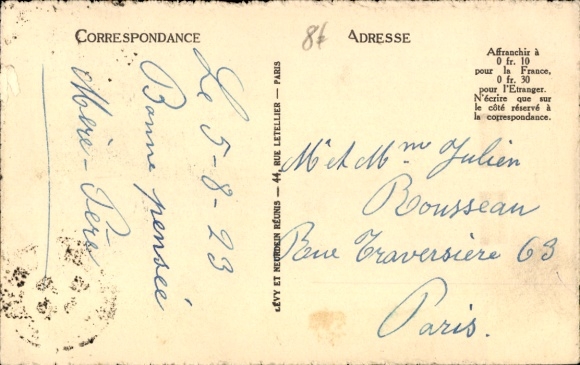 CORRESPONDANCE
Le 5-8-23
Bonne pensée
Mère-Père
LÉVY ET NEURDEIN RÉUNIS — 44, RUE LETELLIER — PARIS
8f
ADRESSE
Affranchir à
0 fr. 10
pour la France,
0 fr. 30
pour l'Etranger.
N'écrire que sur
le côté réservé à
la correspondance.
Mr et Mme Julien
Rousseau
Rue Traversière 63
Paris.